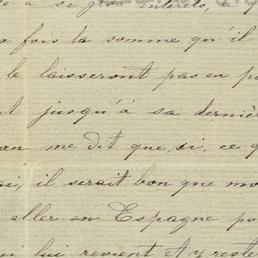 à se gros interêts, à q
a fois la somme qu'il
le laisseront pas en p
t jusqu'à sa derniè
on me dit que, si, ce q
ai, il serait bon que mo
aller en Espagne po
i lui revient et y reste